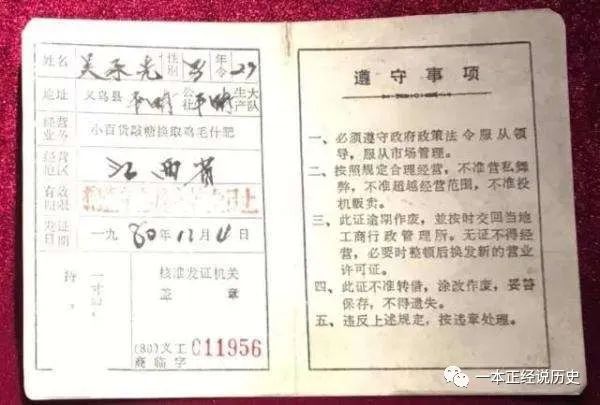 姓名 性别 男 年令 29
地址 义乌县 公社 生产大队
经营业务 小百货敲糖换取鸡毛什肥
经营地区 江西省
有效期限
发证日期 一九80年12月4日
核准发证机关
盖 章
(80)义工商临字 C11956
遵守事项
一、必须遵守政府政策法令服从领
导，服从市场管理。
二、按照规定合理经营，不准营私舞
弊，不准超越经营范围，不准投
机贩卖。
三、此证逾期作废，並按时交回当地
工商行政管理所。无证不得经
营，必要时整顿后换发新的营业
许可证。
四、此证不准转借，涂改作废，妥善
保存，不得遗失。
五、违反上述规定，按违章处理。
一本正经说历史